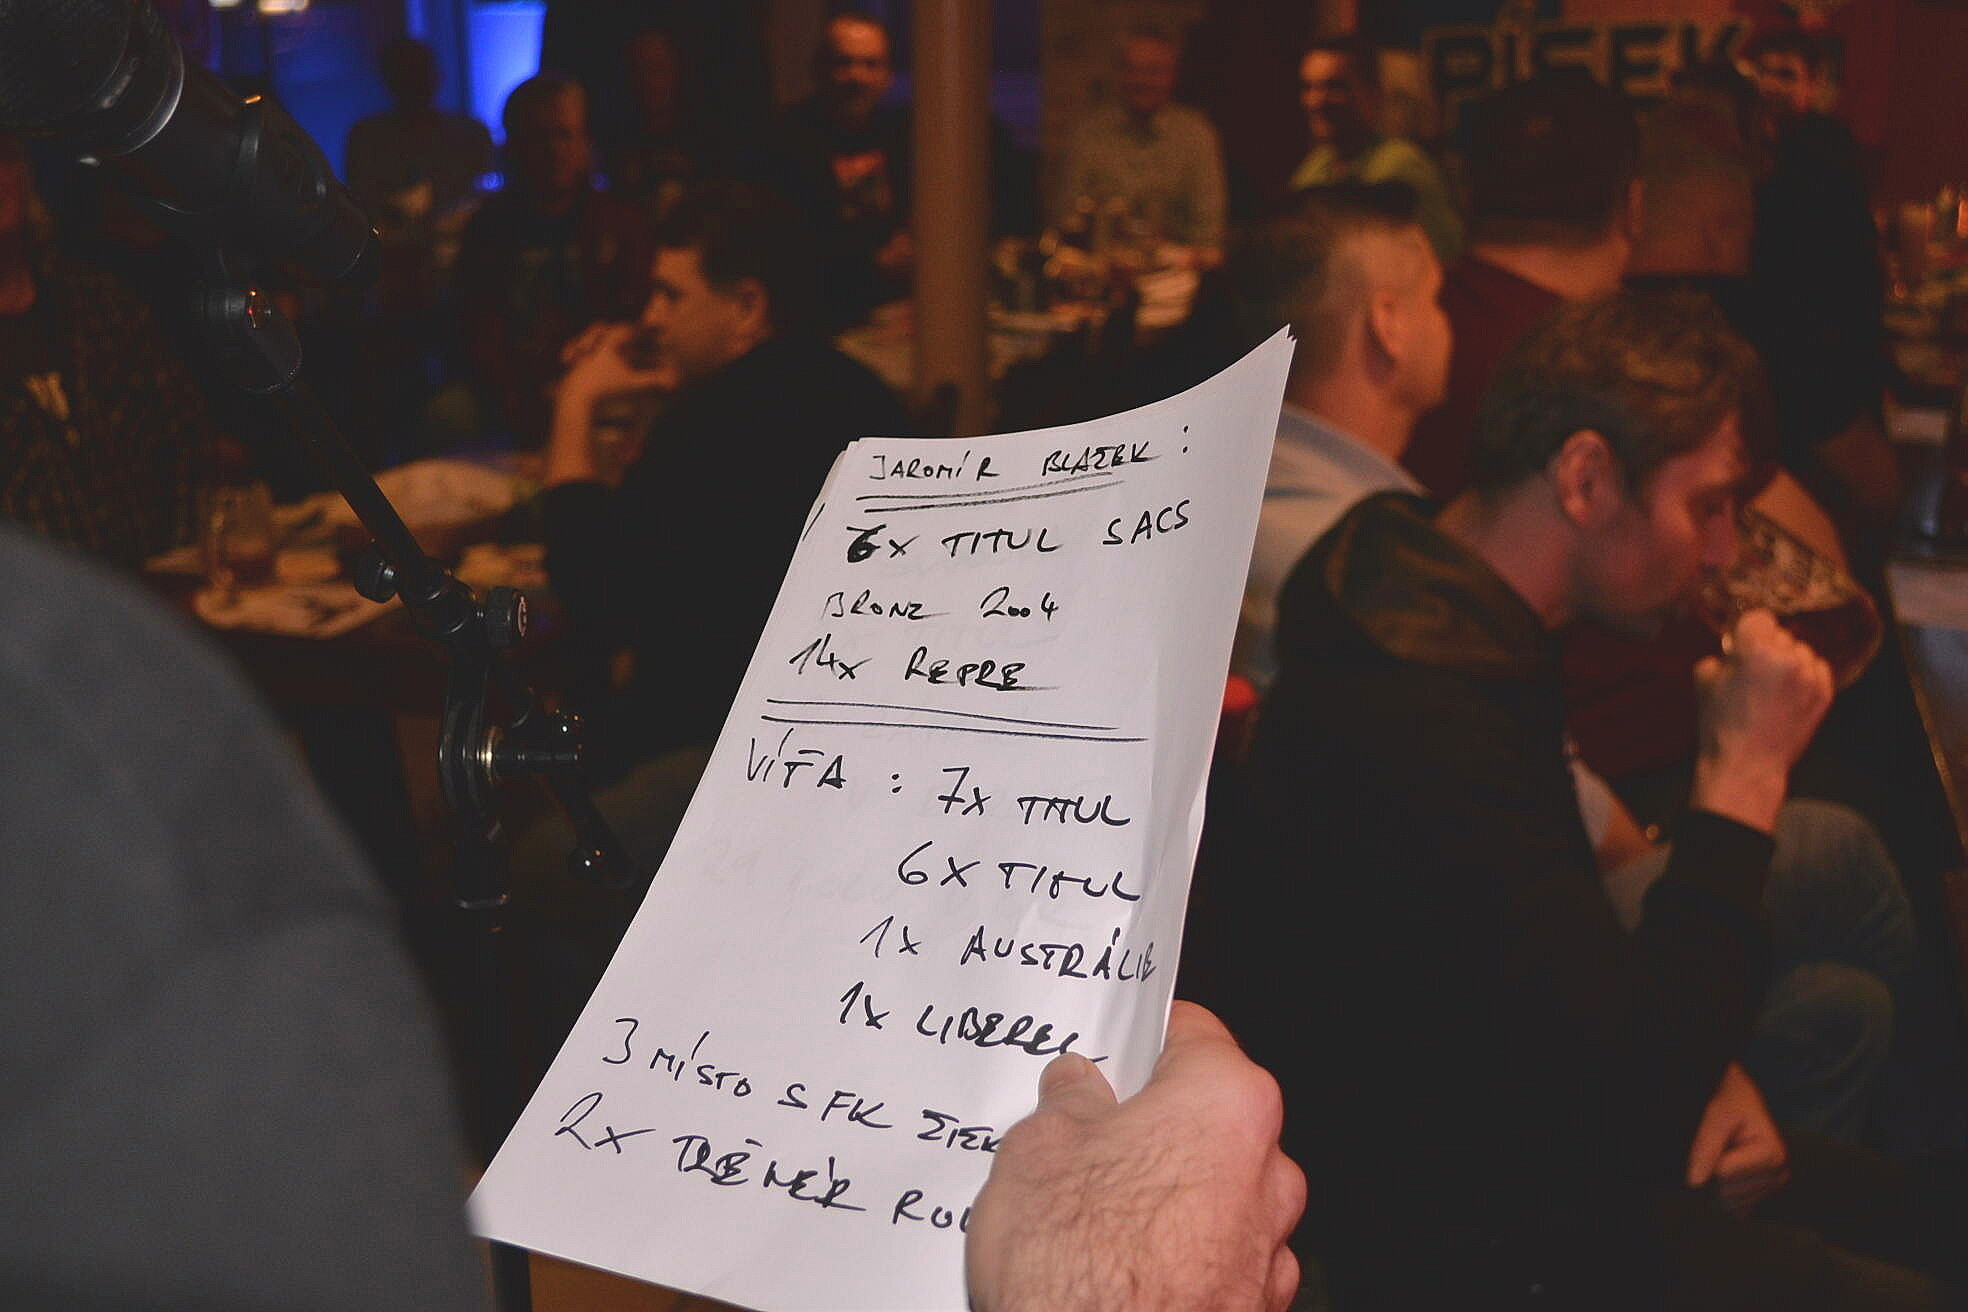 PÍSEK
JAROMÍR BLAŽEK :
6x TITUL SACS
BRONZ 2004
14x REPRE
VÍŤA : 7x TITUL
6x TITUL
1x AUSTRÁLIE
1x LIBEREC
3 MÍSTO S FK
2x TRENÉR